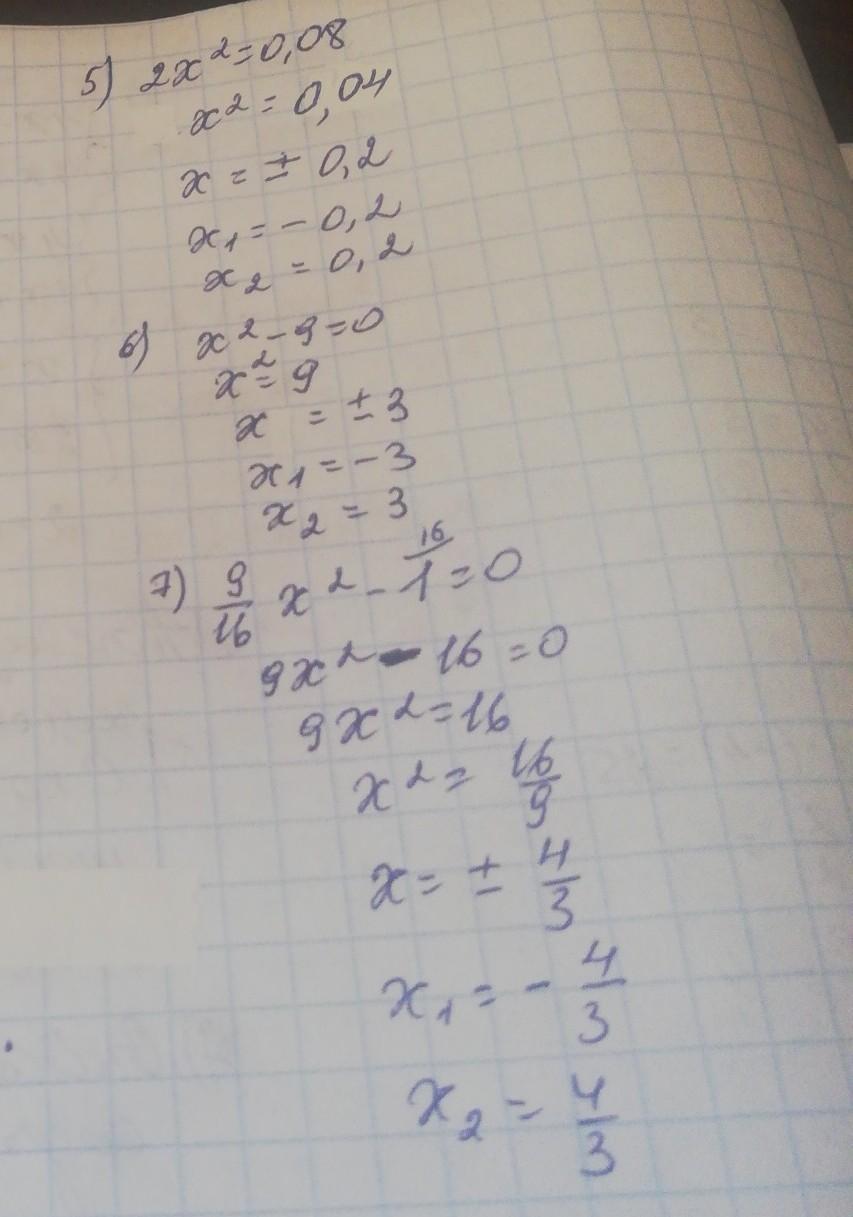 5) 2x² = 0,08
x² = 0,04
x = ± 0,2
x₁ = - 0,2
x₂ = 0,2
6) x² - 9 = 0
x² = 9
x = ± 3
x₁ = - 3
x₂ = 3
7) 9/16 x² - 16/1 = 0
9x² - 16 = 0
9x² = 16
x² = 16/9
x = ± 4/3
x₁ = - 4/3
x₂ = 4/3